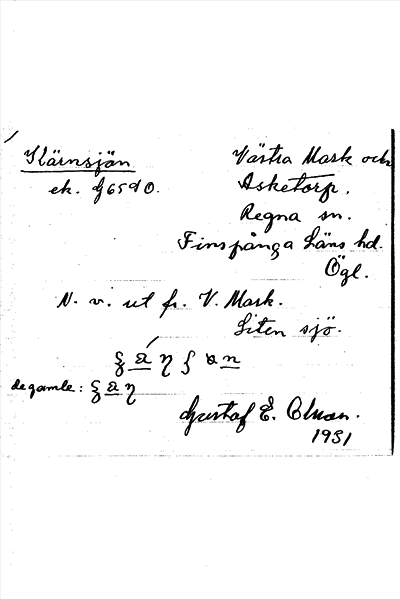 Kärnsjön
ek. G65d0.
Västra Mark och
Asketorp.
Regna sn.
Finspånga läns hd.
Ögl.
N. v. ut fr. V. Mark.
Liten sjö.
de gamle:
Gustaf E. Olsson.
1931